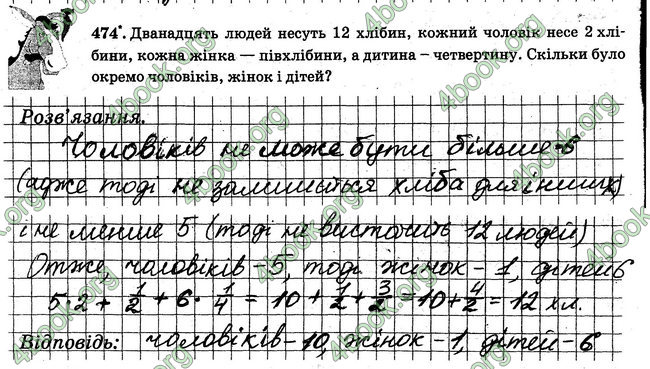 474*. Дванадцять людей несуть 12 хлібин, кожний чоловік несе 2 хлі-
бини, кожна жінка — півхлібини, а дитина – четвертину. Скільки було
окремо чоловіків, жінок і дітей?
Розв'язання.
Чоловіків не може бути більше 6
(адже тоді не залишиться хліба для інших)
і не менше 5 (тоді не вистачить 12 людей)
Отже, чоловіків – 5, тоді жінок – 1, дітей 6
5·2 + 1/2 + 6 · 1/4 = 10 + 1/2 + 3/2 = 10 + 4/2 = 12 хл.
Відповідь: чоловіків – 10, жінок – 1, дітей – 6
4book.org